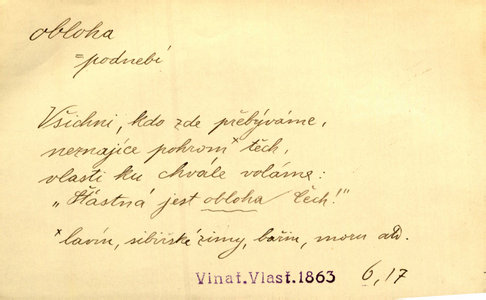 obloha
=podnebí
Všichni, kdo zde přebýváme,
neznajíce pohrom × těch,
vlasti ku chvále voláme:
„Šťastná jest obloha Čech!"
× lavin, sibiřské zimy, bařin, moru atd.
Vinař.Vlast.1863 6,17